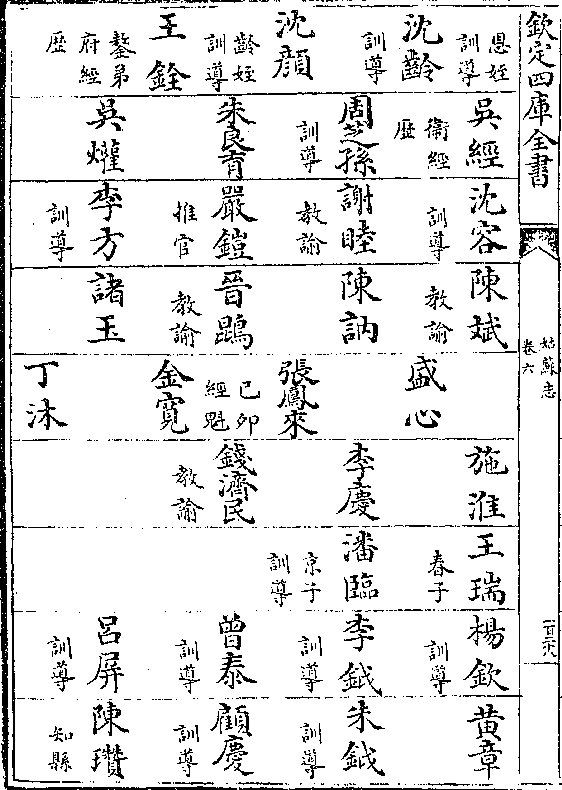 欽定四庫全書
姑蘇志
卷六
恩姪
訓導
沈齡
訓導
沈顔
齡姪
訓導
王銓
鏊弟
府經
歷
吳經
衛經
歷
周芝孫
訓導
朱良育
吳爟
沈容
訓導
謝睦
教諭
嚴鎧
推官
李方
訓導
陳斌
教諭
陳訥
晉鵾
教諭
諸玉
盛心
張鳳來
己卯
經魁
金寛
丁沐
施淮
李慶
錢濟民
教諭
王瑞
春子
潘臨
京子
訓導
楊欽
訓導
李鉞
訓導
曾泰
訓導
呂屏
訓導
黄章
朱鉞
訓導
顧慶
訓導
陳瓚
知縣